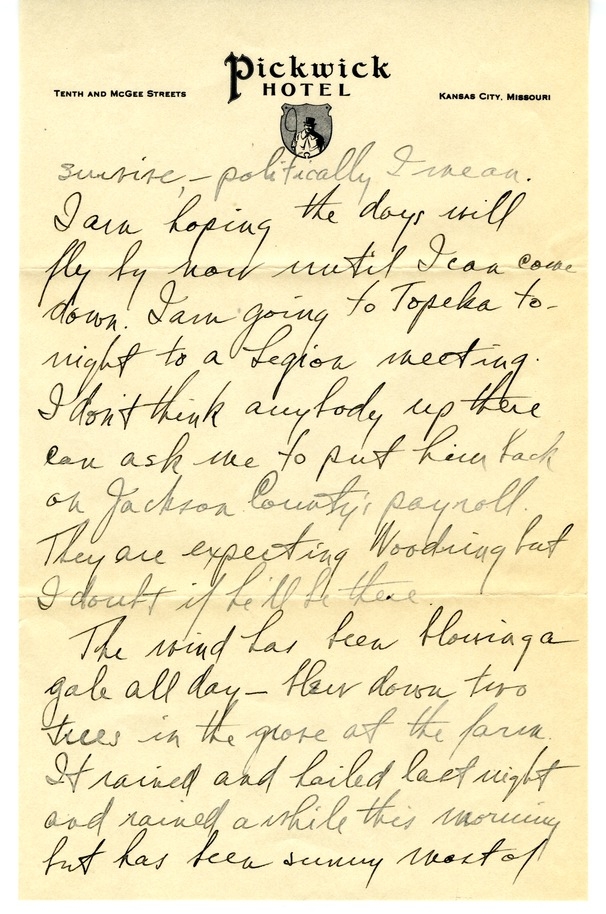 Pickwick
HOTEL
TENTH AND MCGEE STREETS
KANSAS CITY, MISSOURI
survive, - politically I mean.
I am hoping the days will
fly by now until I can come
down. I am going to Topeka to-
night to a Legion meeting.
I don't think anybody up there
can ask me to put him back
on Jackson County's payroll.
They are expecting Woodring but
I doubt if he'll be there.
The wind has been blowing a
gale all day - blew down two
trees in the grove at the farm.
It rained and hailed last night
and rained a while this morning
but has been sunny most of